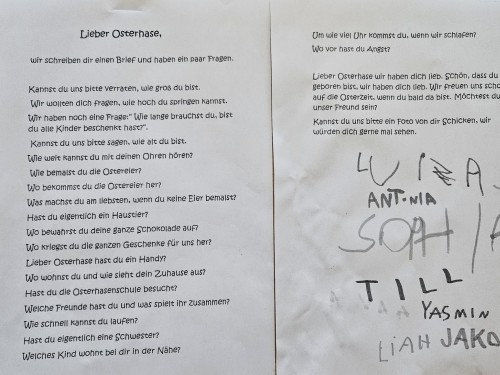 Lieber Osterhase,
wir schreiben dir einen Brief und haben ein paar Fragen.
Kannst du uns bitte verraten, wie groß du bist.
Wir wollten dich fragen, wie hoch du springen kannst.
Wir haben noch eine Frage:" Wie lange brauchst du, bist
du alle Kinder beschenkt hast?".
Kannst du uns bitte sagen, wie alt du bist.
Wie weit kannst du mit deinen Ohren hören?
Wie bemalst du die Ostereier?
Wo bekommst du die Ostereier her?
Was machst du am liebsten, wenn du keine Eier bemalst?
Hast du eigentlich ein Haustier?
Wo bewahrst du deine ganze Schokolade auf?
Wo kriegst du die ganzen Geschenke für uns her?
Lieber Osterhase hast du ein Handy?
Wo wohnst du und wie sieht dein Zuhause aus?
Hast du die Osterhasenschule besucht?
Welche Freunde hast du und was spielt ihr zusammen?
Wie schnell kannst du laufen?
Hast du eigentlich eine Schwester?
Welches Kind wohnt bei dir in der Nähe?
Um wie viel Uhr kommst du, wenn wir schlafen?
Wo vor hast du Angst?
Lieber Osterhase wir haben dich lieb. Schön, dass du
geboren bist, wir haben dich lieb. Wir freuen uns scho
auf die Osterzeit, wenn du bald da bist. Möchtest du
unser Freund sein?
Kannst du uns bitte ein Foto von dir Schicken, wir
würden dich gerne mal sehen.
LUIZA
ANTONIA
SOPHIA
TILL
YASMIN
LIAH JAKO